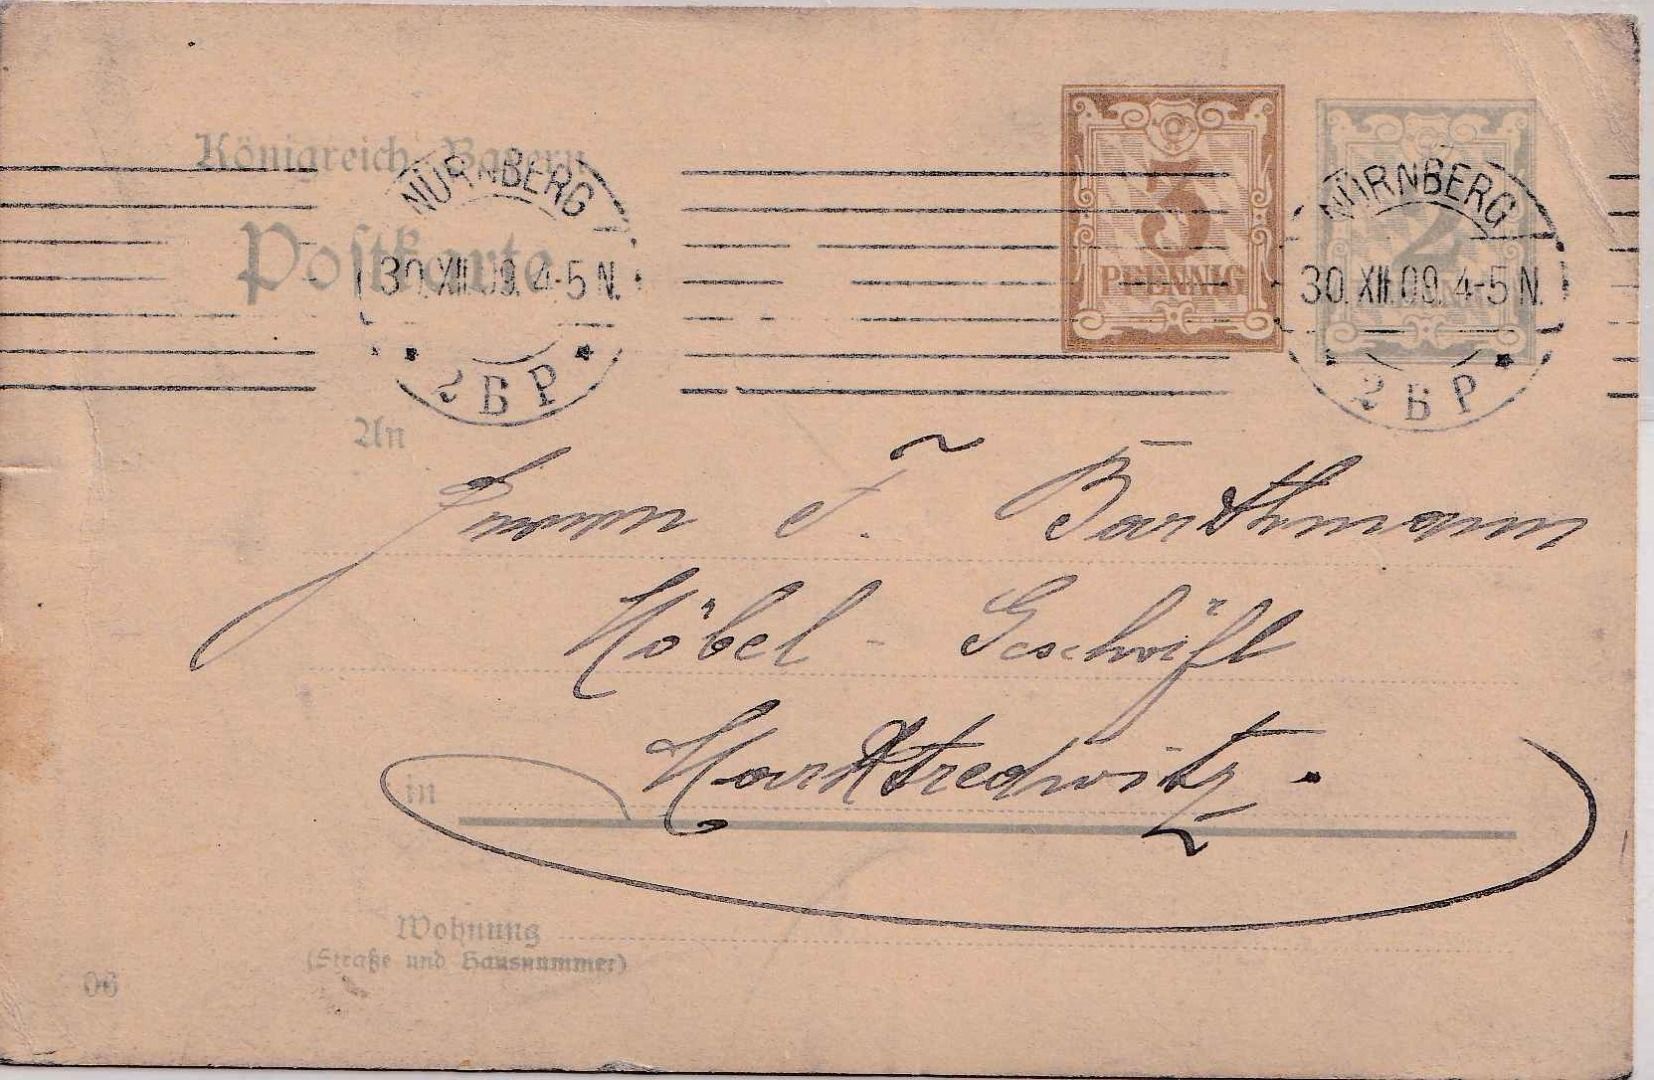 Königreich Bayern
Postkarte
NÜRNBERG
30.XII.09.4-5N.
2 B P
3
PFENNIG
2
PFENNIG
NÜRNBERG
30.XII.09.4-5N.
2 B P
An
F. Barthmann
Möbel - Geschäft
in Marktredwitz.
Wohnung
(Straße und Hausnummer)
06